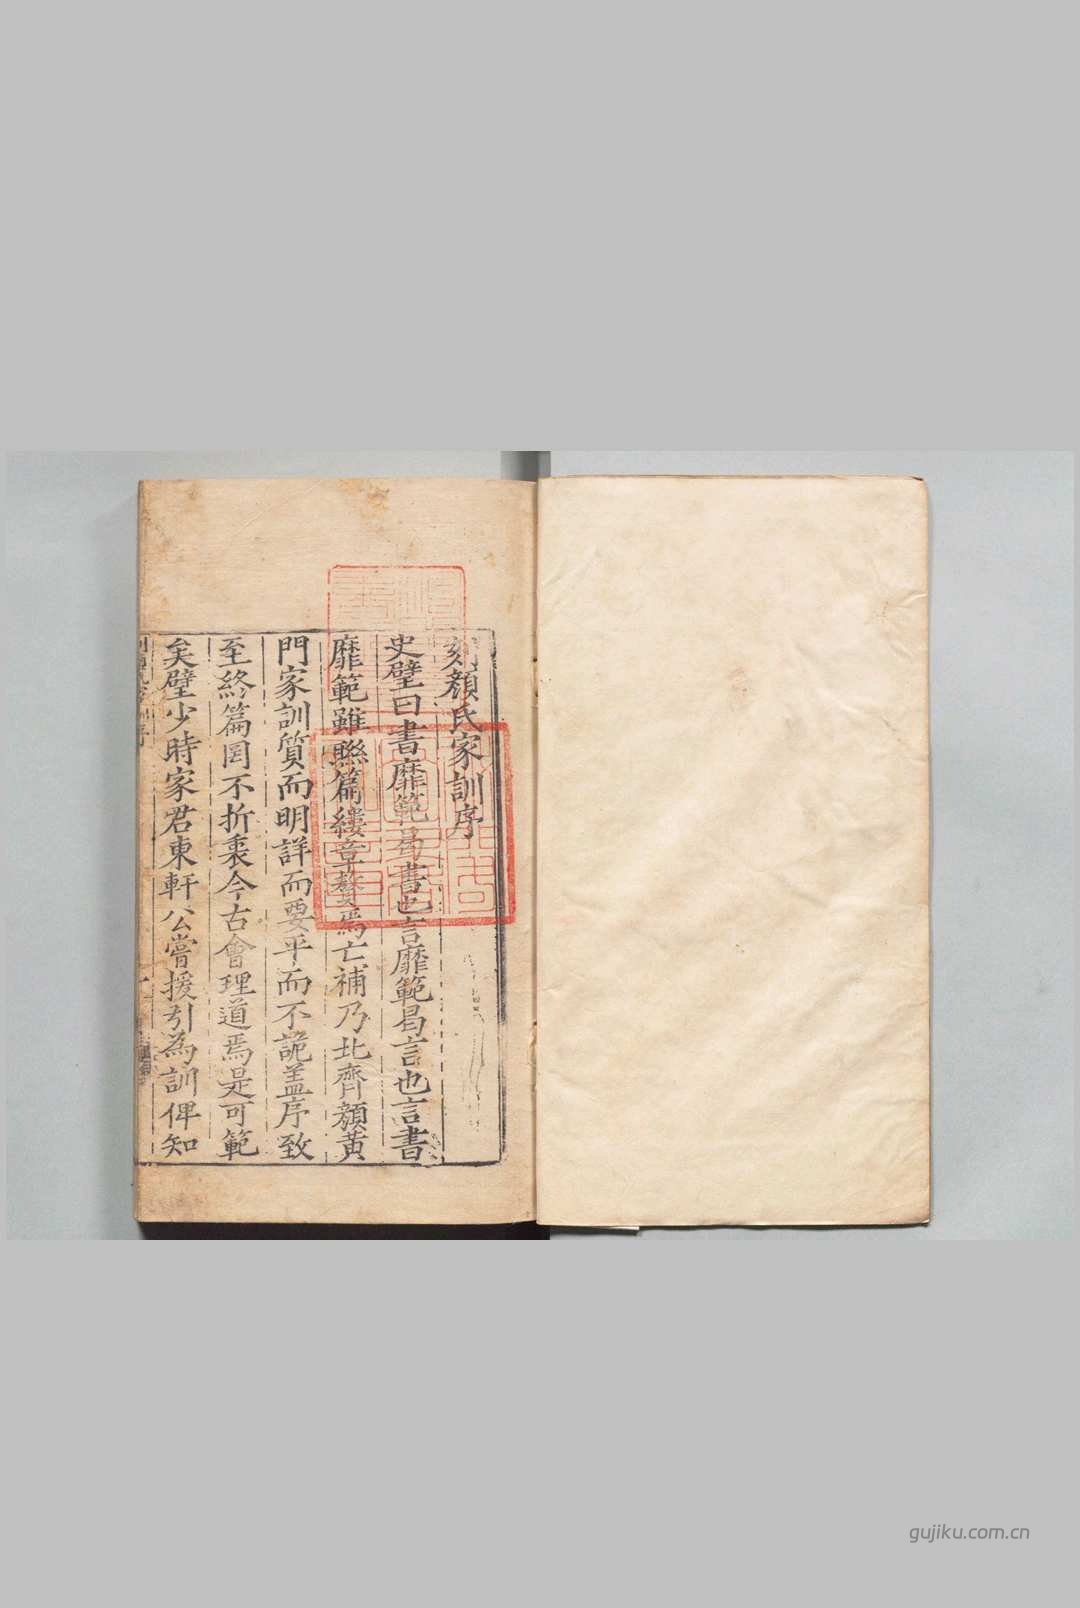 刻顏氏家訓序
史璧曰書靡範曷書也言靡範曷言也言書
靡範雖聮篇縷章贅焉亡補乃北齊顏黃
門家訓質而明詳而要平而不詭盖序致
至終篇罔不折衷今古會理道焉是可範
矣璧少時家君東軒公嘗援引為訓俾知
gujiku.com.cn